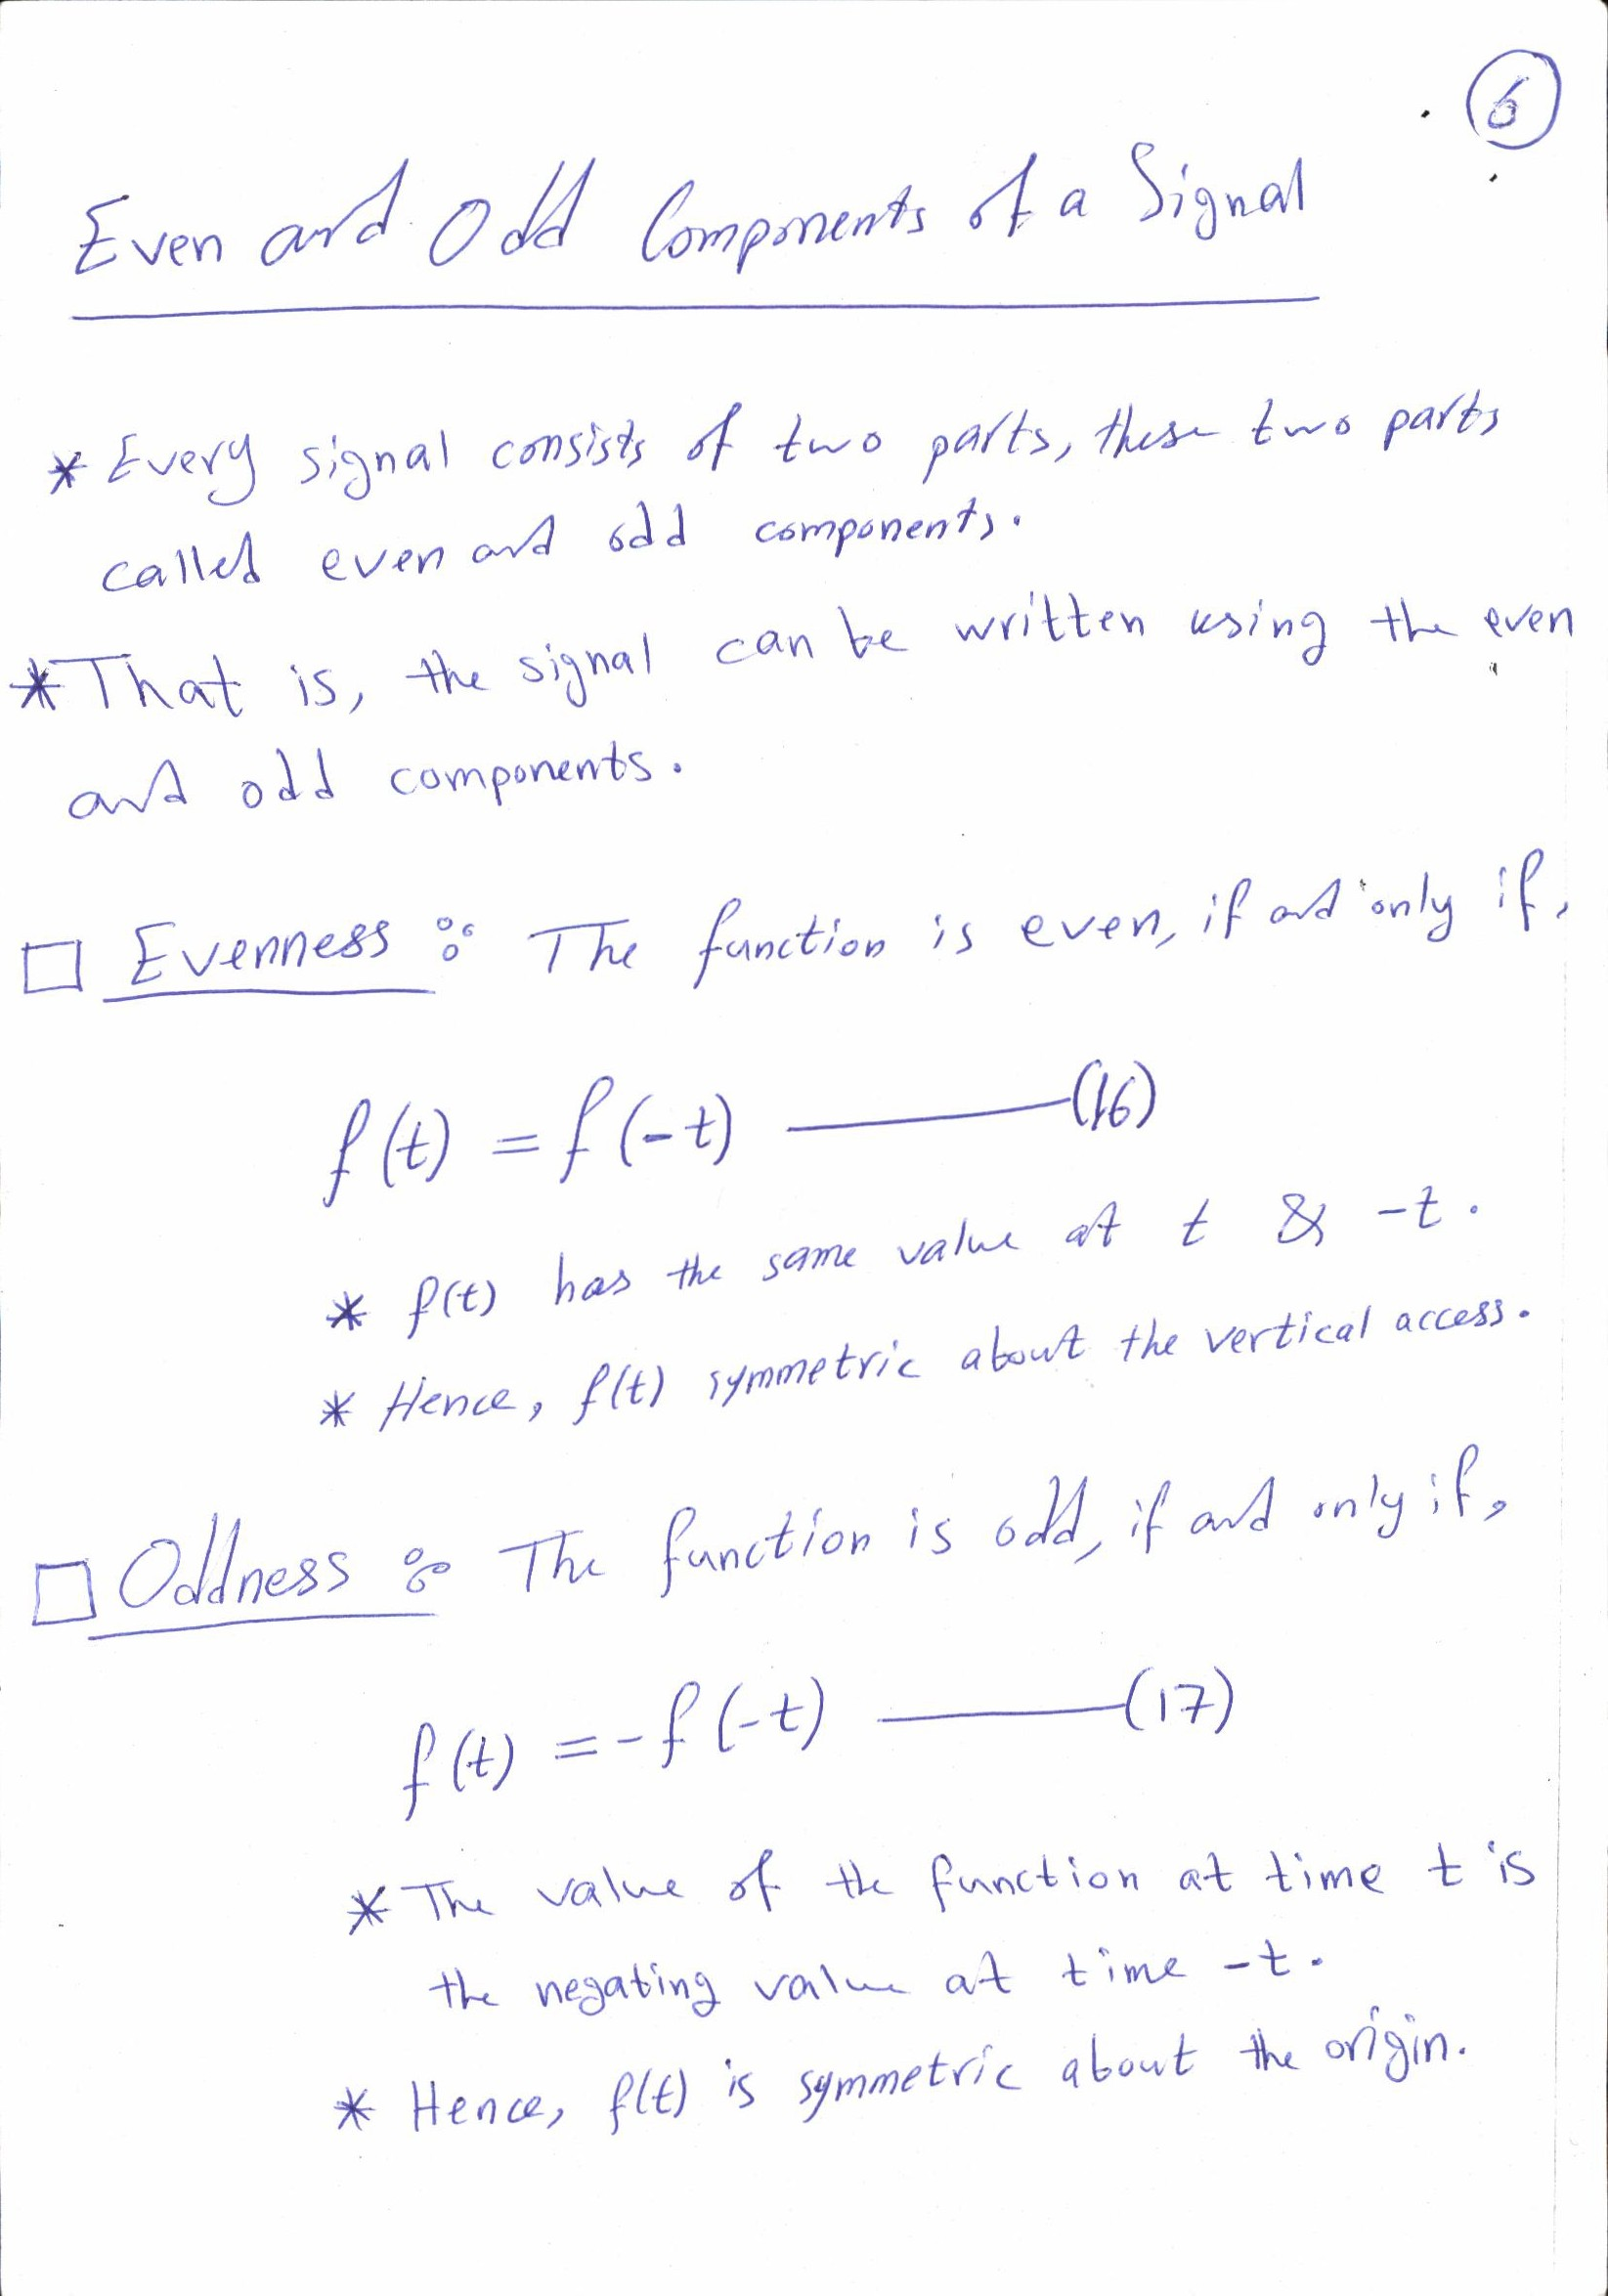 6
Even and Odd Components of a Signal
* Every signal consists of two parts, these two parts
called even and odd components.
* That is, the signal can be written using the even
and odd components.
□ Evenness : The function is even, if and only if,
f(t) = f(-t) ———(16)
* f(t) has the same value at t & -t.
* Hence, f(t) symmetric about the vertical access.
□ Oddness : The function is odd, if and only if,
f(t) = -f(-t) ———(17)
* The value of the function at time t is
the negating value at time -t.
* Hence, f(t) is symmetric about the origin.